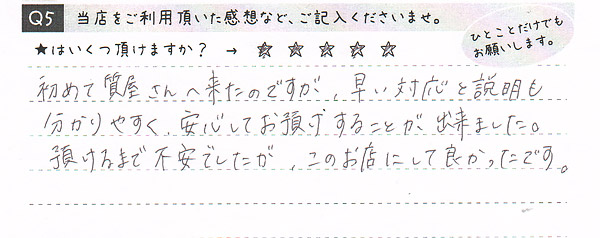 Q5 当店をご利用頂いた感想など、ご記入くださいませ。
★はいくつ頂けますか？ → ☆ ☆ ☆ ☆ ☆
ひとことだけでも
お願いします。
初めて質屋さんへ来たのですが、早い対応と説明も
分かりやすく、安心してお預けすることが出来ました。
預けるまで不安でしたが、このお店にして良かったです。